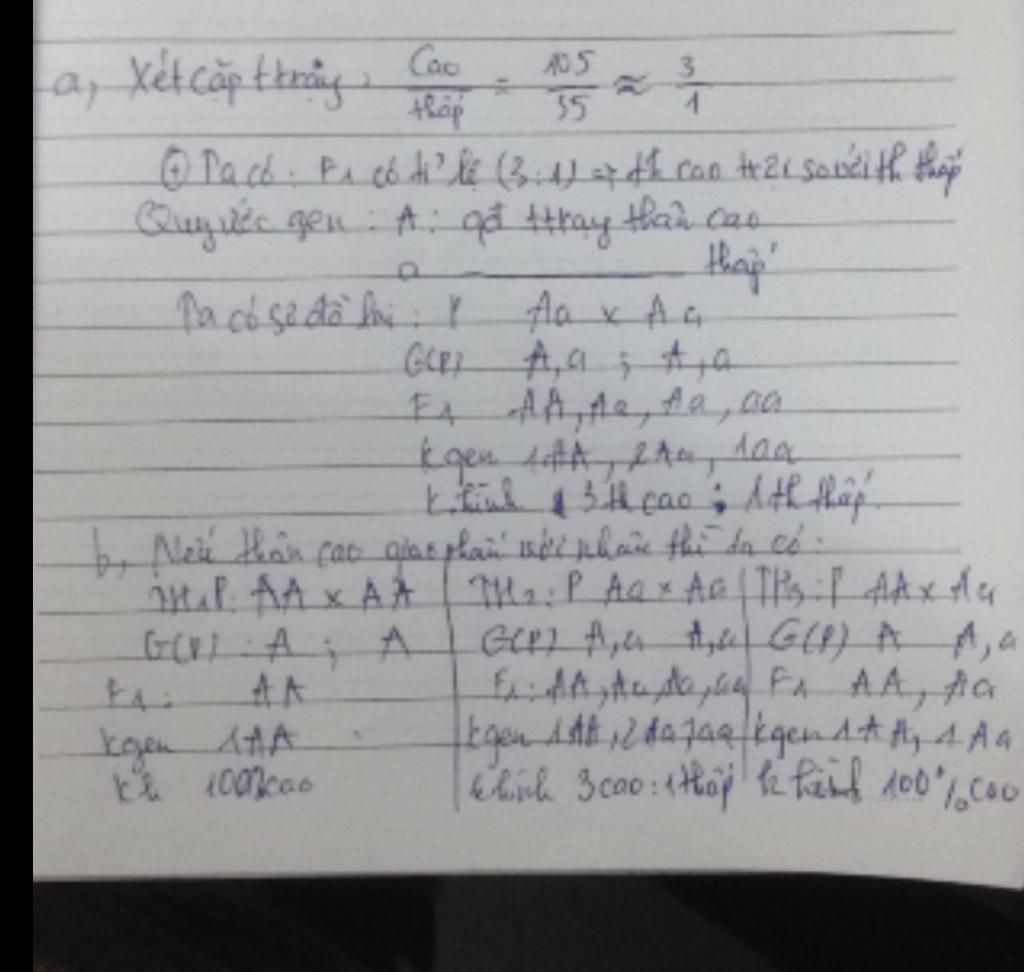 a, Xét cặp ttrạng: Cao/thấp = 105/35 ≈ 3/1
⊕ Ta có: F1 có tỉ lệ (3:1) => th cao trội so với th thấp
Quy ước gen: A: qđ ttrạng thân cao
a ———— thấp
Ta có sơ đồ lai: P Aa x Aa
G(P) A,a ; A,a
F1 AA, Aa, Aa, aa
kgen 1AA, 2Aa, 1aa
k.hình 3 th cao : 1 th thấp
b, Nếu thân cao giao phấn với nhau thì ta có:
TH1 P: AA x AA | TH2: P Aa x Aa | TH3: P AA x Aa
G(P): A ; A | G(P) A,a A,a | G(P) A A,a
F1: AA | F1: AA, Aa, Aa, aa | F1 AA, Aa
kgen 1AA | kgen 1AA, 2Aa 1aa | kgen 1AA, 1Aa
kh 100% cao | khình 3cao:1thấp | k hình 100% cao